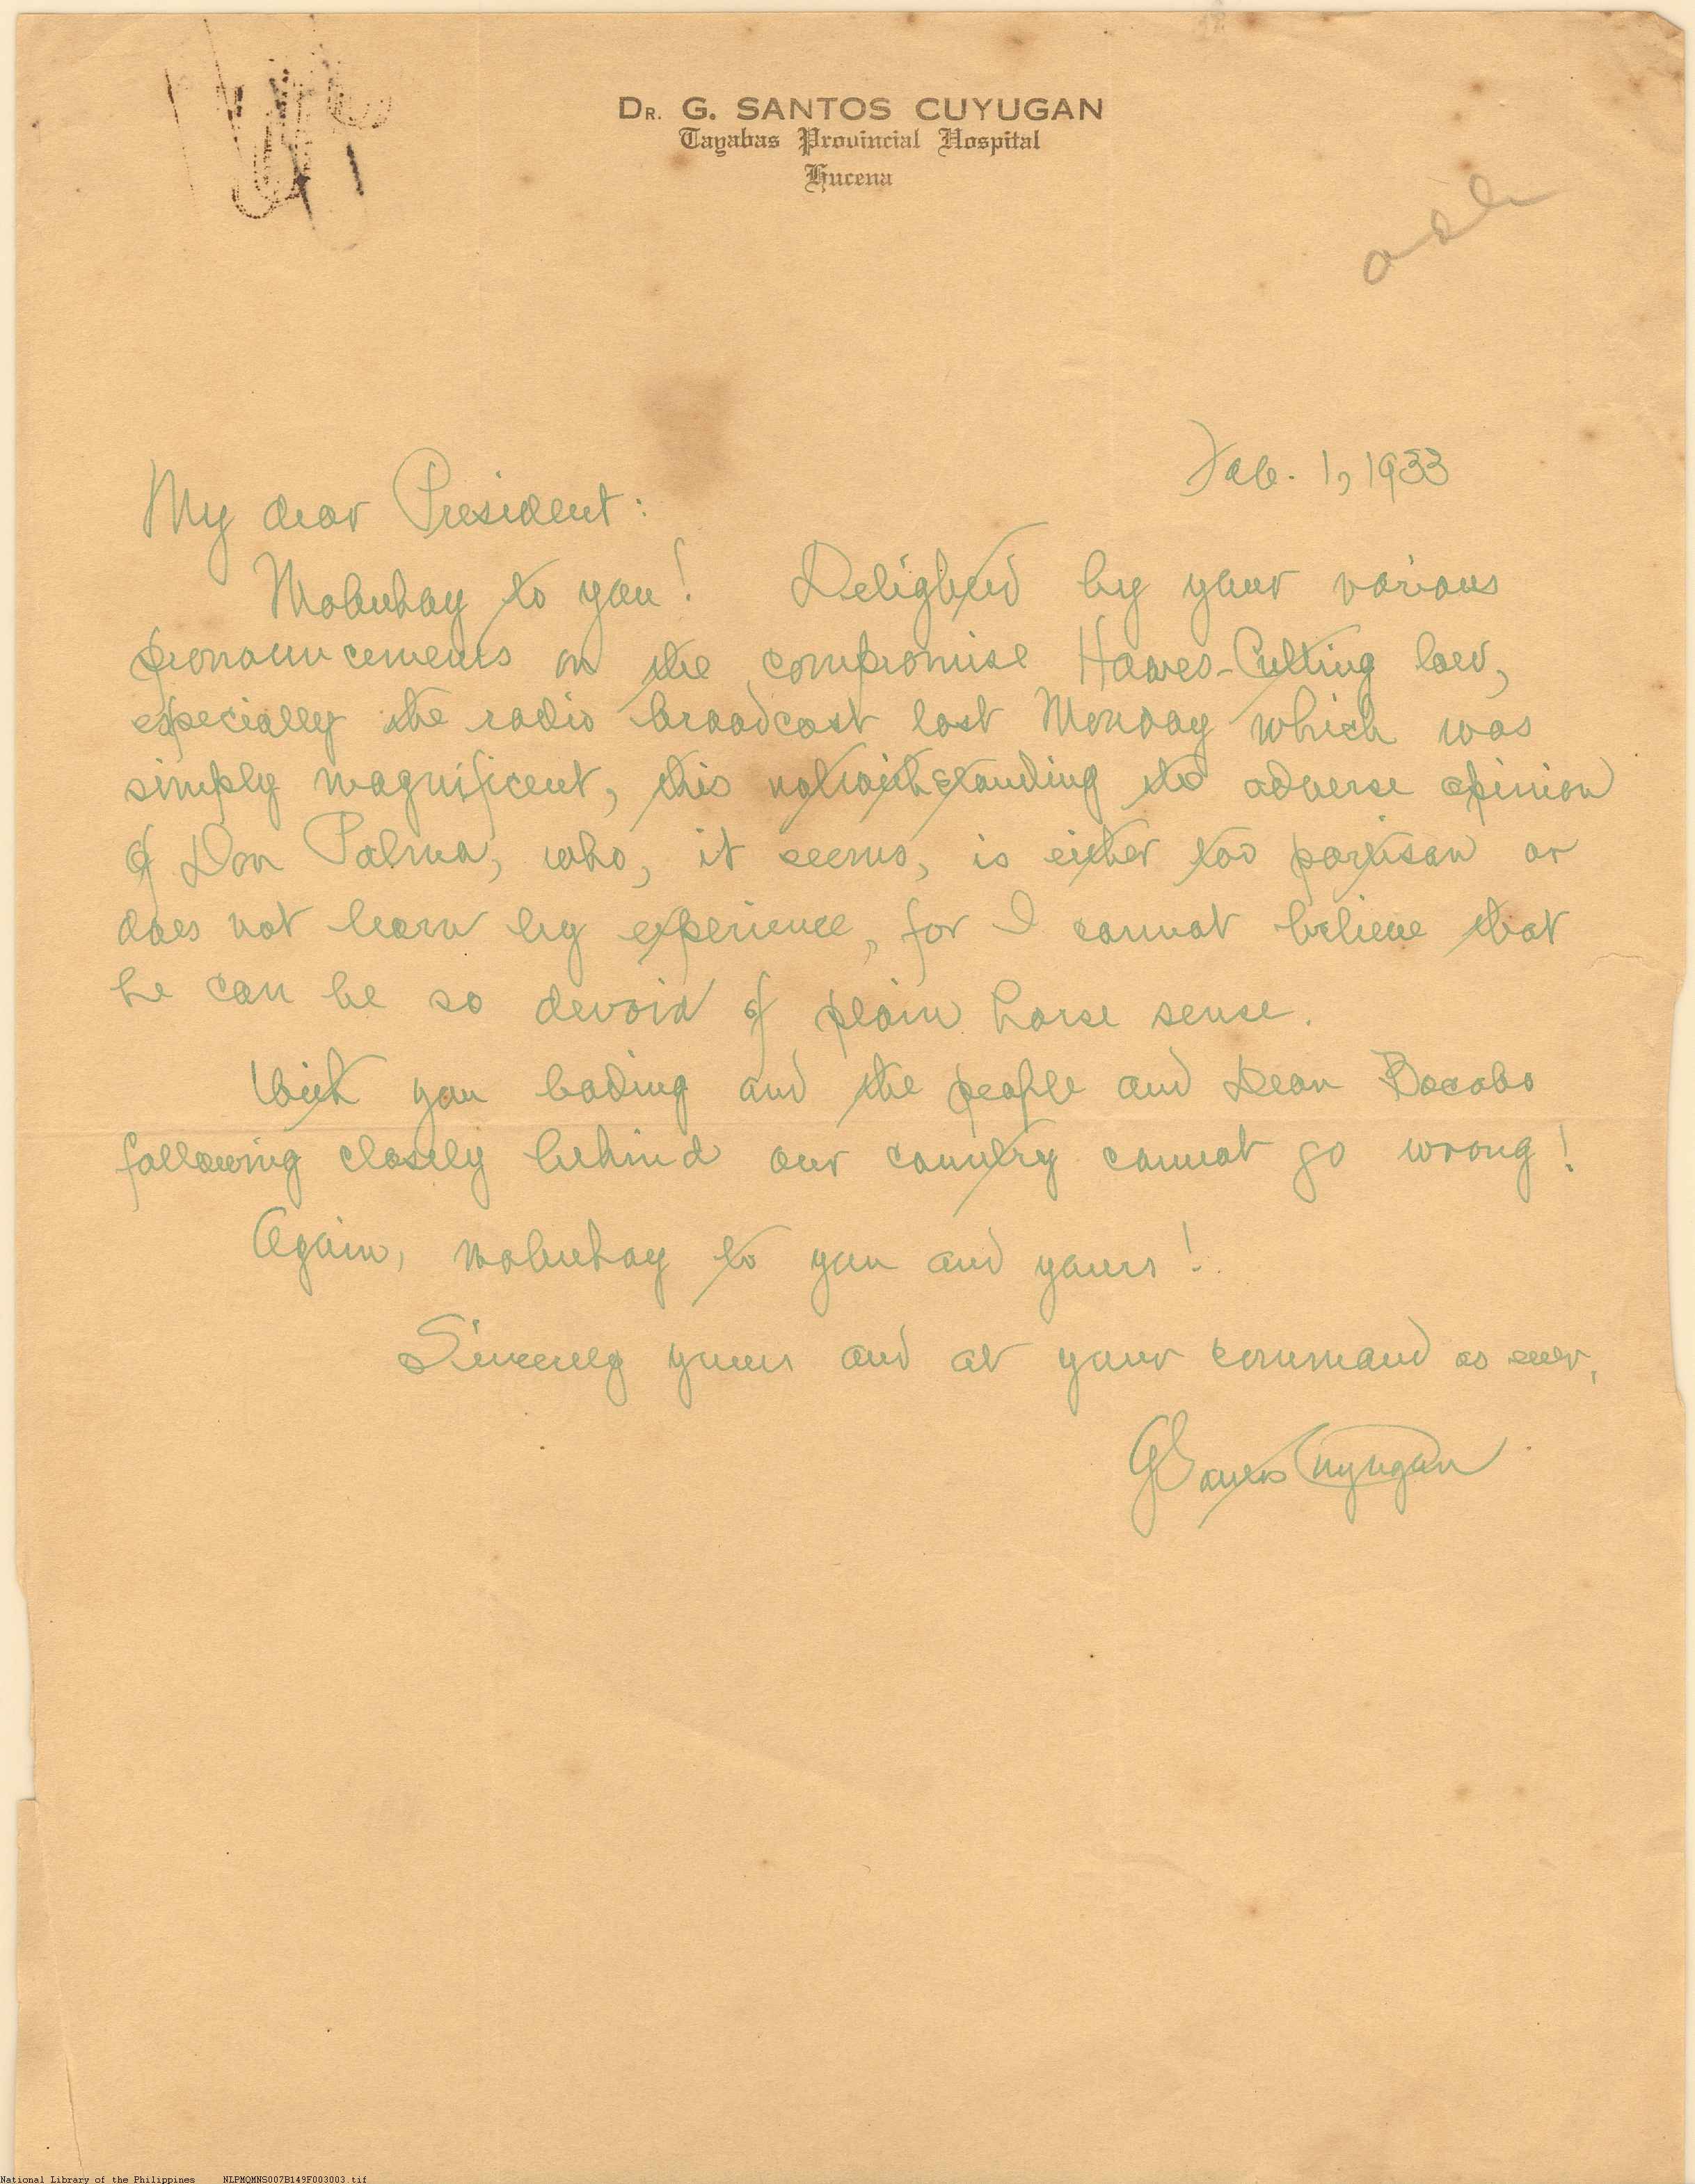 DR. G. SANTOS CUYUGAN
Tayabas Provincial Hospital
Lucena
Feb. 1, 1933
My dear President:
Mabuhay to you! Delighted by your various
pronouncements on the compromise Hawes-Cutting law,
especially the radio broadcast last Monday which was
simply magnificent, this notwithstanding the adverse opinion
of Don Palma, who, it seems, is either too partisan or
does not learn by experience, for I cannot believe that
he can be so devoid of plain horse sense.
With you leading and the people and Dean Bocobo
following closely behind our country cannot go wrong!
Again, mabuhay to you and yours!
Sincerely yours and at your command as ever,
GSantos Cuyugan
National Library of the Philippines NLPMQMNS007B149F003003.tif